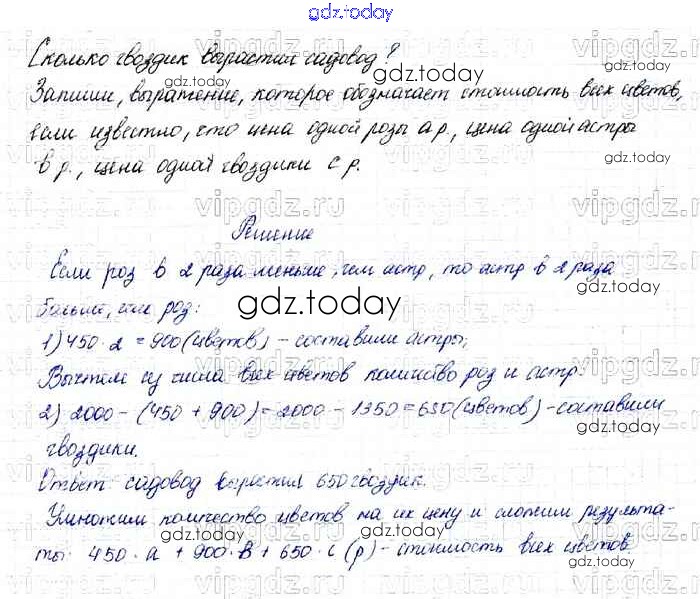 gdz.today
Сколько гвоздик вырастил садовод?
Запиши, выражение, которое обозначает стоимость всех цветов,
если известно, что цена одной розы а р., цена одной астры
в р., цена одной гвоздики с р.
Решение
Если роз в 2 раза меньше, чем астр, то астр в 2 раза
больше, чем роз:
1) 450 · 2 = 900 (цветков) - составили астры;
Вычтем из числа всех цветов количество роз и астр:
2) 2000 - (450 + 900) = 2000 - 1350 = 650 (цветов) - составили
гвоздики.
Ответ садовод вырастил 650 гвоздик.
Умножим количество цветов на их цену и сложим результа-
ты: 450 · а + 900 · в + 650 · с (р) - стоимость всех цветов.